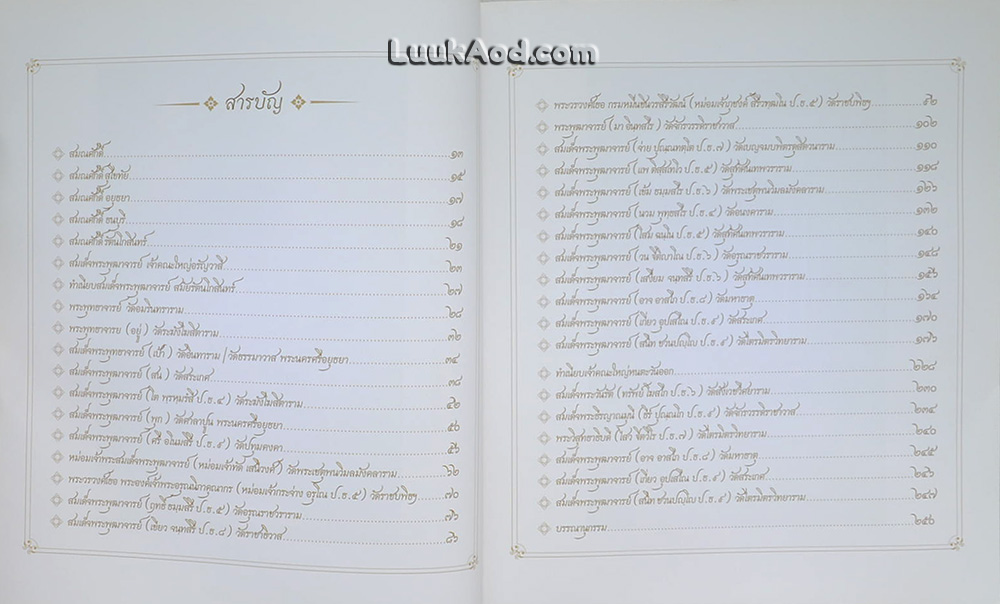 LuukAod.com
สารบัญ
สมณศักดิ์ ๑๓
สมณศักดิ์ สุโขทัย ๑๕
สมณศักดิ์ อยุธยา ๑๗
สมณศักดิ์ ธนบุรี ๑๘
สมณศักดิ์ รัตนโกสินทร์ ๒๑
สมเด็จพระพุฒาจารย์ เจ้าคณะใหญ่อรัญวาสี ๒๓
ทำเนียบสมเด็จพระพุฒาจารย์ สมัยรัตนโกสินทร์ ๒๗
พระพุทธาจารย์ วัดอมรินทราราม ๒๘
พระพุทธาจารย์ (อยู่) วัดระฆังโฆสิตาราม ๓๒
สมเด็จพระพุทธาจารย์ (เป้า) วัดอินทาราม / วัดธรรมาวาส พระนครศรีอยุธยา ๓๔
สมเด็จพระพุฒาจารย์ (สน) วัดสระเกศ ๓๘
สมเด็จพระพุฒาจารย์ (โต พฺรหฺมรํสี ป.ธ.๔) วัดระฆังโฆสิตาราม ๔๒
สมเด็จพระพุฒาจารย์ (พุก) วัดศาลาปูน พระนครศรีอยุธยา ๕๐
สมเด็จพระพุฒาจารย์ (ศรี อโนมสิริ ป.ธ.๙) วัดปทุมคงคา ๕๖
หม่อมเจ้าพระสมเด็จพระพุฒาจารย์ (หม่อมเจ้าทัด เสนีวงศ์) วัดพระเชตุพนวิมลมังคลาราม ๖๒
พระวรวงศ์เธอ พระองค์เจ้าพระอรุณนิภาคุณากร (หม่อมเจ้ากระจ่าง อรุโณ ป.ธ.๕) วัดราชบพิธฯ ๗๐
สมเด็จพระพุฒาจารย์ (ฤทธิ์ ธมฺมสิริ ป.ธ.๕) วัดอรุณราชวราราม ๗๖
สมเด็จพระพุฒาจารย์ (เขียว จนฺทสิริ ป.ธ.๘) วัดราชาธิวาส ๘๖
พระวรวงศ์เธอ กรมหมื่นชินวรสิริวัฒน์ (หม่อมเจ้าภุชงค์ สิริวฑฺฒโน ป.ธ.๕) วัดราชบพิธฯ ๙๒
พระพุฒาจารย์ (มา อินฺทสโร) วัดจักรวรรดิราชาวาส ๑๐๒
สมเด็จพระพุฒาจารย์ (จ่าย ปุณฺณทตฺโต ป.ธ.๗) วัดเบญจมบพิตรดุสิตวนาราม ๑๑๐
สมเด็จพระพุฒาจารย์ (แพ ติสฺสเทโว ป.ธ.๕) วัดสุทัศนเทพวราราม ๑๑๘
สมเด็จพระพุฒาจารย์ (เข้ม ธมฺมสโร ป.ธ.๖) วัดพระเชตุพนวิมลมังคลาราม ๑๒๖
สมเด็จพระพุฒาจารย์ (นวม พุทฺธสโร ป.ธ.๔) วัดอนงคาราม ๑๓๒
สมเด็จพระพุฒาจารย์ (โสม ฉนฺโน ป.ธ.๕) วัดสุทัศนเทพวราราม ๑๔๐
สมเด็จพระพุฒาจารย์ (วน ฐิติญาโณ ป.ธ.๖) วัดอรุณราชวราราม ๑๔๘
สมเด็จพระพุฒาจารย์ (เสงี่ยม จนฺทสิริ ป.ธ.๖) วัดสุทัศนเทพวราราม ๑๕๖
สมเด็จพระพุฒาจารย์ (อาจ อาสโภ ป.ธ.๘) วัดมหาธาตุ ๑๖๔
สมเด็จพระพุฒาจารย์ (เกี่ยว อุปเสโณ ป.ธ.๙) วัดสระเกศ ๑๗๐
สมเด็จพระพุฒาจารย์ (สนิท ชวนปญฺโญ ป.ธ.๙) วัดไตรมิตรวิทยาราม ๑๗๖
ทำเนียบเจ้าคณะใหญ่หนตะวันออก ๒๒๘
สมเด็จพระวันรัต (ทรัพย์ โฆสโก ป.ธ.๖) วัดสังเวชวิศยาราม ๒๓๐
สมเด็จพระธีรญาณมุนี (ธีร์ ปุณฺณโก ป.ธ.๙) วัดจักรวรรดิราชาวาส ๒๓๔
พระวิสุทธาธิบดี (ไสว ฐิตวีโร ป.ธ.๗) วัดไตรมิตรวิทยาราม ๒๔๐
สมเด็จพระพุฒาจารย์ (อาจ อาสโภ ป.ธ.๘) วัดมหาธาตุ ๒๔๕
สมเด็จพระพุฒาจารย์ (เกี่ยว อุปเสโณ ป.ธ.๙) วัดสระเกศ ๒๔๖
สมเด็จพระพุฒาจารย์ (สนิท ชวนปญฺโญ ป.ธ.๙) วัดไตรมิตรวิทยาราม ๒๔๗
บรรณานุกรม ๒๕๐